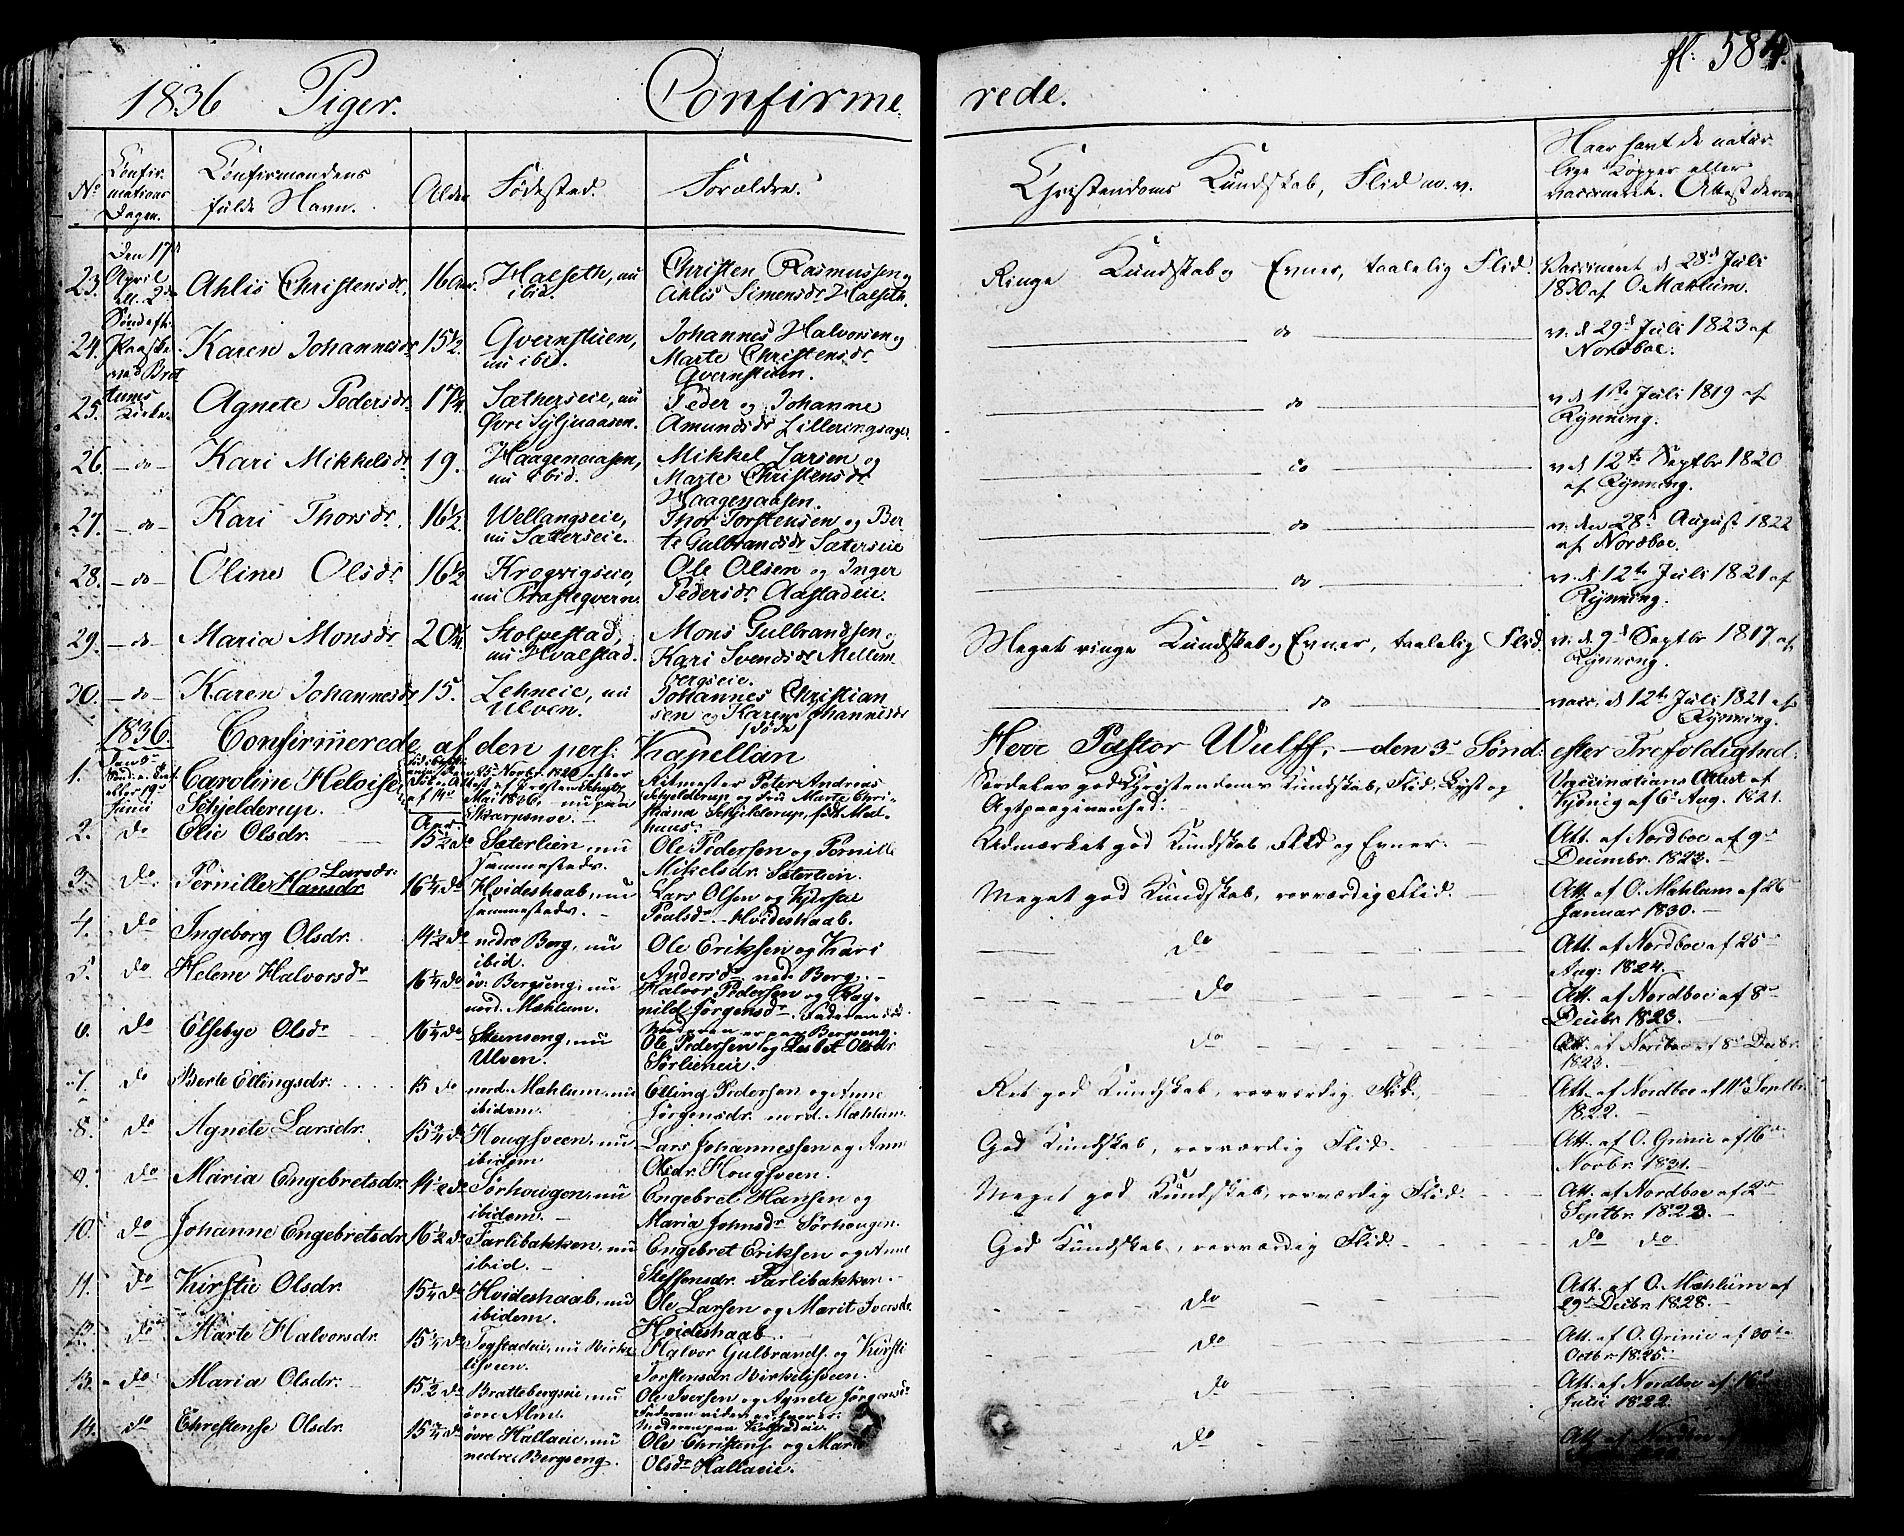 1836 Piger. Confirmerede. fl. 584.
No Confirmations Dagen. Confirmandens fulde Navn. Alder Fødested. Forældre. Christendoms Kundskab, Flid m. v. Haar havt de naturlige Kopper eller vaccineret. Attest derom
23. Den 17d April Ahlis Christensdr. 16 Aar. Halseth, nu ibid. Christen Rasmussen og Ahlis Simensdr Halseth. Ringe Kundskab og Evner, taalelig Flid. Vaccineret d. 28d Juli 1830 af O. Mæhlum.
24. Karen Johannesdr 15½ Qvernstuen, nu ibid. Johannes Halvorsen og Marte Christensdr Qvernstuen. do v. d. 29d Juli 1823 af Nordboe.
25. Agnete Pedersdr 17¾ Sætherseie, nu Øvre Syljuaasen. Peder og Johanne Amundsdr Lilleringsager. do v. d. 1ste Juli 1819 af Rynning.
26. do Kari Mikkelsdr 19. Haagenaasen, nu ibid. Mikkel Larsen og Marte Christensdr Haagenaasen. do v. d. 12te Septbr 1820 af Rynning.
27. do Kari Thorsdr. 16½ Wellangseie, nu Sæterseie. Thor Torstensen og Berte Gulbrandsdr Sæterseie do v. den 28d August 1822 af Nordboe.
28. do Oline Olsdr 16½ Krogvigseie, nu Præsteqvern. Ole Olsen og Inger Pedersdr Aastadeie. do v. d. 12te Juli 1821 af Rynning.
29. do Maria Monsdr 20¾ Stolpestad, nu Hvalstad. Mons Gulbrandsen og Kari Svendsdr Mellembergseie. Meget ringe Kundskab og Evner, taalelig Flid. v. d. 9d Septbr 1817 af Rynning.
30. do Karen Johannesdr 15. Lehneie, nu Ulven. Johannes Christiansen og Karen Johannesdr (døde) do vacc. d. 12te Juli 1821 af Rynning.
1836. Confirmerede af den pers: Kapellan Herr Pastor Wulff, den 3. Sønd: efter Trefoldighed.
1. Caroline Heloise Schjelderup. Ritmester Peter Andreas Schjelderup og Fru Marte Christiana Schjelderup, født Aalhuus. Særdeles god Christendoms Kundskab, Flid, Lyst og Agtpaagivenhed. Vaccinations Attest af Nydnig af 6. Aug. 1821.
2. do Elie Olsdr. 15½ do Sæterlien, nu sammesteds. Ole Pedersen og Pernille Mikelsdr Sæterlien. Udmærket god Kundskab, Flid og Evner. Att. af Nordboe af 9. Decembr. 1823.
3. do. Pernille Hansdr. Larsdr. 16¼ do Hvideshaab, nu sammesteds. Lars Olsen og Kjersti Poulsdr. Hvideshaab. Meget god Kundskab, roværdig Flid. Att. af O. Mæhlum af 26 Januar 1830.
4. do Ingeborg Olsdr. 14½ do nedre Berg, nu ibid. Ole Eriksen og Kari Andersdr ned. Berg. do Att. af Nordboe af 25 Aug: 1824.
5. do Helene Halvorsdr 16¼ do øv. Bergseng, nu nord. Mæhlum. Halvor Pedersen og Ragnild Jørgensdr. Faderen død. Moderen er paa Bergseng. do Att. af Nordboe af 8 Decbr. 1823.
6. do Elsebye Olsdr 16¼ do Steenseng, nu Ulven. Ole Pedersen og Lisbet Olsdr Sørlieneie. do Att. af Nordboe af 8. Decbr. 1823.
7. do Berte Ellingsdr. 15 do nord. Mæhlum, nu ibidem. Elling Pedersen og Anne Jørgensdr. nord. Mæhlum. Ret god Kundskab, roværdig Flid. Att. af Nordboe af 11. Septbr. 1822.
8. do Agnete Larsdr. 15¾ do Hougsveen, nu ibidem Lars Johannessen og Anne Olsdr. Hougsveen. God Kundskab, roværdig Flid. Att. af O. Grinie af 16. Novbr. 1831.
9. do Maria Engebretsdr. 14½ do Sørhougen, nu ibidem. Engebret Hansen og Maria Johnsdr Sørhougen. Meget god Kundskab, roværdig Flid. Att. af Nordboe af 2. Septbr. 1823.
10. do Johanne Engebretsdr 16½ do Farlibakken, nu ibid. Engebret Eriksen og Anne Steffensdr. Farlibakken. God Kundskab, roværdig Flid. do do
11. do Kirstie Olsdr. 15¼ do Hvideshaab, nu ibidem. Ole Larsen og Marit Iversdr Hvideshaab. do Att. af O. Mæhlum af 29. Decbr. 1828.
12. do Marte Halvorsdr. 15¼ do Togstadeie, nu Birkelisveen. Halvor Gulbrands. og Kirsti Torstensdr. Birkelisveen. do Att. af O. Grinie af 30te Octbr. 1825.
13. do Maria Olsdr. 15½ do Brattebergseie, nu øvre Alm. Ole Iversen og Agnete Jørgensdr do Att. af Nordboe af 16. Julii 1822.
14. do Christense Olsdr. 15¾ do øvre Hallaeie, nu nedre Bergseng. Ole Christens. og Mari Olsdr Hallaeie. do Att. af Nordboe